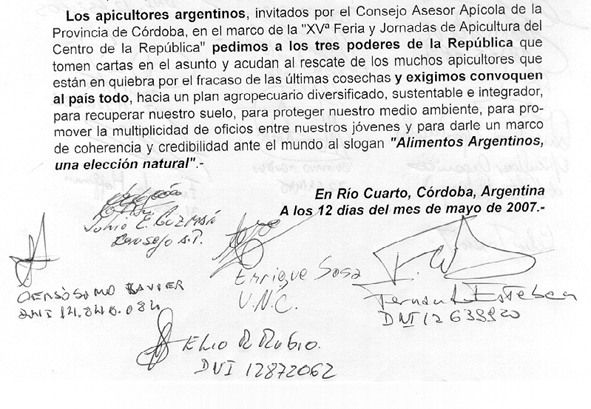 Los apicultores argentinos, invitados por el Consejo Asesor Apícola de la
Provincia de Córdoba, en el marco de la "XVª Feria y Jornadas de Apicultura del
Centro de la República" pedimos a los tres poderes de la República que
tomen cartas en el asunto y acudan al rescate de los muchos apicultores que
están en quiebra por el fracaso de las últimas cosechas y exigimos convoquen
al país todo, hacia un plan agropecuario diversificado, sustentable e integrador,
para recuperar nuestro suelo, para proteger nuestro medio ambiente, para pro-
mover la multiplicidad de oficios entre nuestros jóvenes y para darle un marco
de coherencia y credibilidad ante el mundo al slogan "Alimentos Argentinos,
una elección natural".-
En Río Cuarto, Córdoba, Argentina
A los 12 días del mes de mayo de 2007.-
Julio E. Guzmán
Consejo
Enrique Sosa
U.N.C.
Javier
DNI
Fernando Esteban
DNI
Elio R Rubio.
DNI 12872062